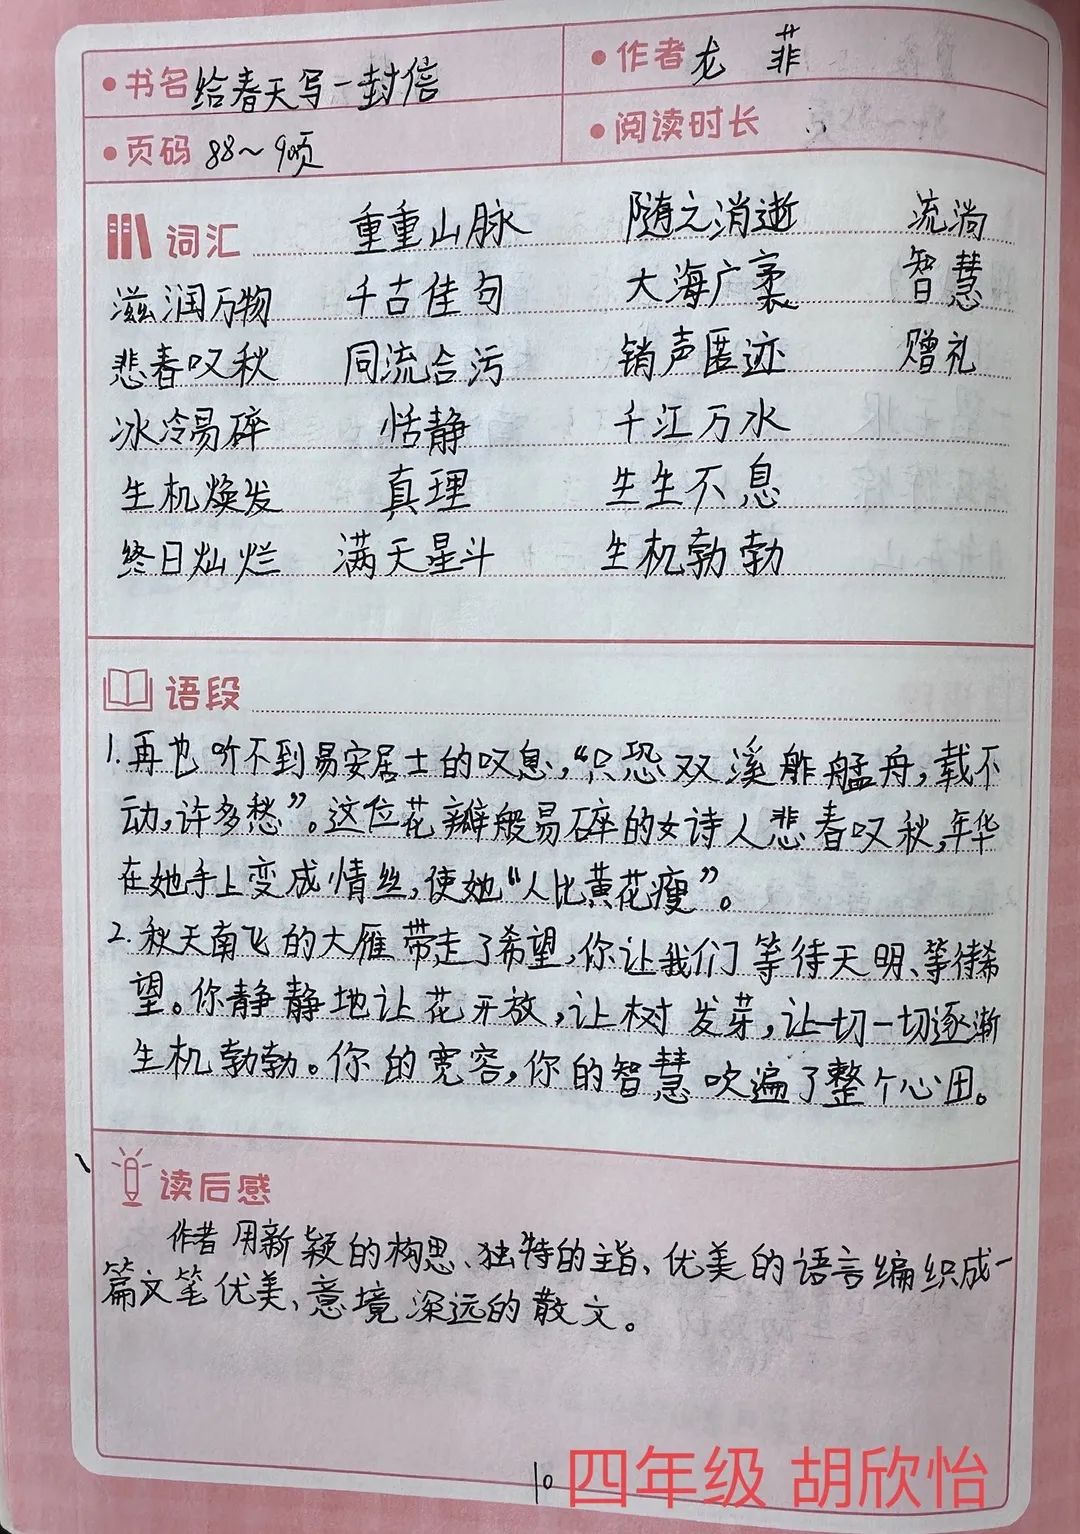 书名 给春天写一封信
作者 龙 菲
页码 88～90页
阅读时长
词汇 重重山脉 随之消逝 流淌
滋润万物 千古佳句 大海广袤 智慧
悲春叹秋 同流合污 销声匿迹 赠礼
冰冷易碎 恬静 千江万水
生机焕发 真理 生生不息
终日灿烂 满天星斗 生机勃勃
语段
1.再也听不到易安居士的叹息，“只恐双溪舴艋舟，载不
动，许多愁”。这位花瓣般易碎的女诗人悲春叹秋，年华
在她手上变成情丝，使她“人比黄花瘦”。
2.秋天南飞的大雁带走了希望，你让我们等待天明、等待希
望。你静静地让花开放，让树发芽，让一切一切逐渐
生机勃勃。你的宽容，你的智慧吹遍了整个心田。
读后感
作者用新颖的构思、独特的主旨、优美的语言编织成一
篇文笔优美、意境深远的散文。
10
四年级 胡欣怡